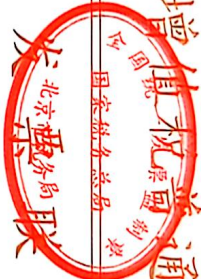 增值税普通
全国统一发票监制章
国家税务总局
北京市税务局
发票联